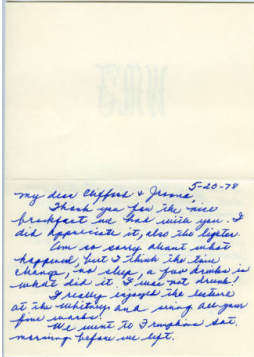 5-20-78
My dear Clifford &
Thank you for the nice
breakfast we had with you. I
did appreciate it, also the lighter.
Am so sorry about what
happened, but I think the time
change, no sleep, a few drinks is
what did it. I was not drunk!
I really enjoyed the lecture
at the Whitney and seing all your
fine works!
We went to Sat.
morning before we left.